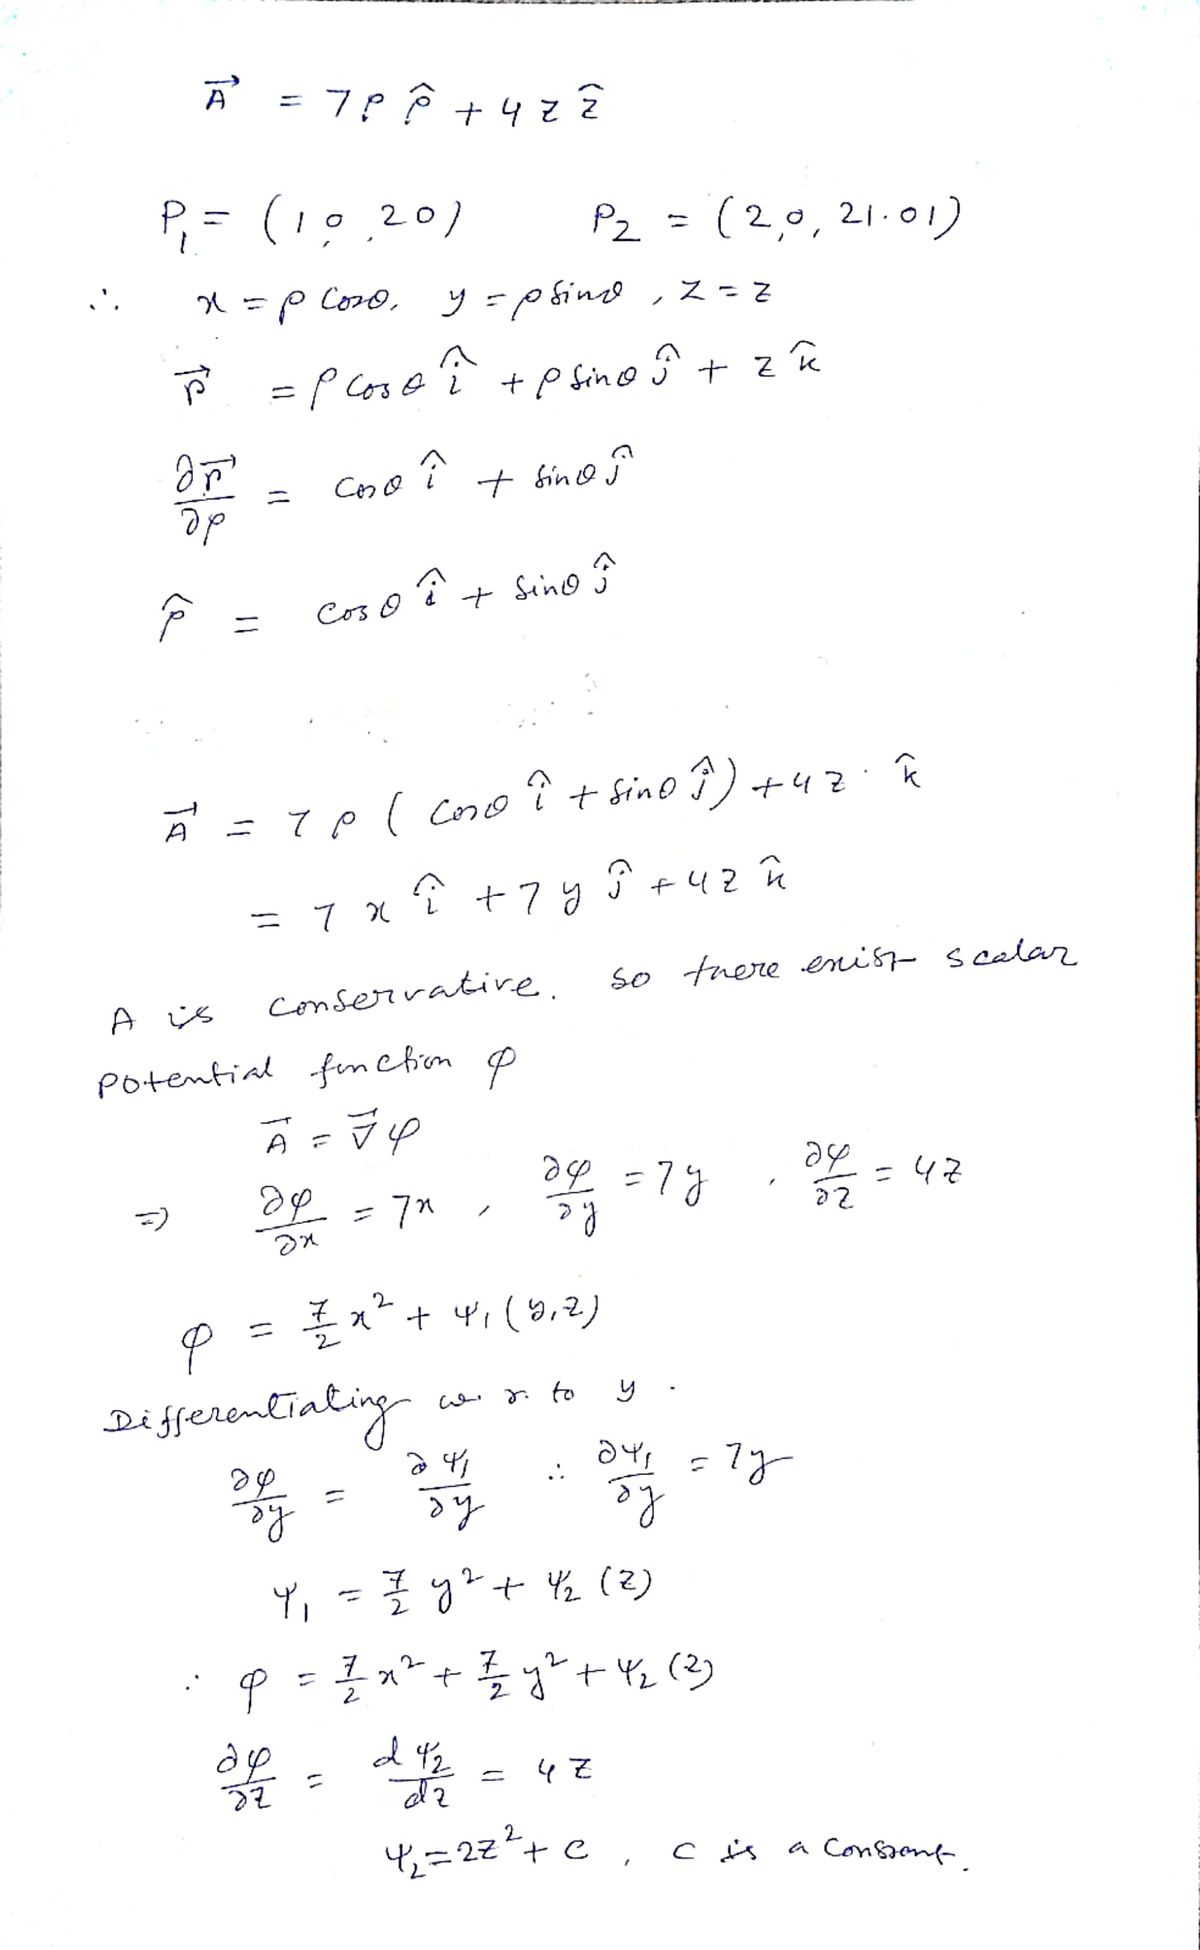 A⃗ = 7ρ ρ̂ + 4z ẑ
P₁ = (1,0,20) P₂ = (2,0, 21.01)
∴ x = ρ cosθ, y = ρ sinθ, z = z
r⃗ = ρ cosθ î + ρ sinθ ĵ + z k̂
∂r⃗/∂ρ = cosθ î + sinθ ĵ
ρ̂ = cosθ î + sinθ ĵ
A⃗ = 7ρ ( cosθ î + sinθ ĵ) + 4z · k̂
= 7x î + 7y ĵ + 4z k̂
A is conservative. so there exist scalar
potential function φ
A⃗ = ∇⃗φ
⇒ ∂φ/∂x = 7x, ∂φ/∂y = 7y, ∂φ/∂z = 4z
φ = 7/2 x² + ψ₁(y,z)
Differentiating w. r. to y.
∂φ/∂y = ∂ψ₁/∂y ∴ ∂ψ₁/∂y = 7y
ψ₁ = 7/2 y² + ψ₂(z)
∴ φ = 7/2 x² + 7/2 y² + ψ₂(z)
∂φ/∂z = dψ₂/dz = 4z
ψ₂ = 2z² + c, c is a constant.